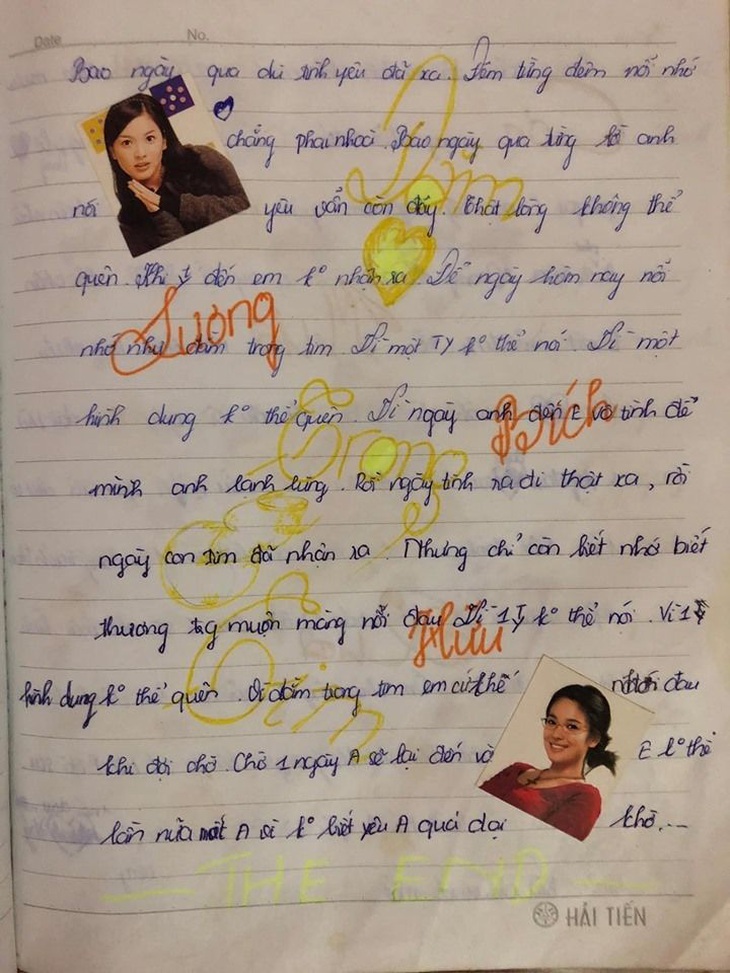 Date No.
Bao ngày qua dù tình yêu đã xa. Đêm từng đêm nỗi nhớ
chẳng phai nhoà. Bao ngày qua từng lời anh
nói yêu vẫn còn đấy. Thật lòng không thể
quên. Khi ty đến em k° nhận ra. Để ngày hôm nay nỗi
nhớ như đâm trong tim. Vì một TY k° thể nói. Vì một
hình dung k° thể quên. Vì ngày anh đến E vô tình để
mình anh lạnh lùng. Rồi ngày tình ra đi thật xa, rồi
ngày con tim đã nhận ra. Nhưng chỉ còn biết nhớ biết
thương tg muộn màng nỗi đau. Vì 1 Ty k° thể nói. Vì 1
hình dung k° thể quên. Vì đắm trong tim em cứ thế nhói đau
khi đợi chờ. Chờ 1 ngày A sẽ lại đến và E k° thể
lần nữa mất A vì k° biết yêu A quá dại khờ...
Lượng
Bích
Hữu
Trong
Tim
THE END
HẢI TIẾN